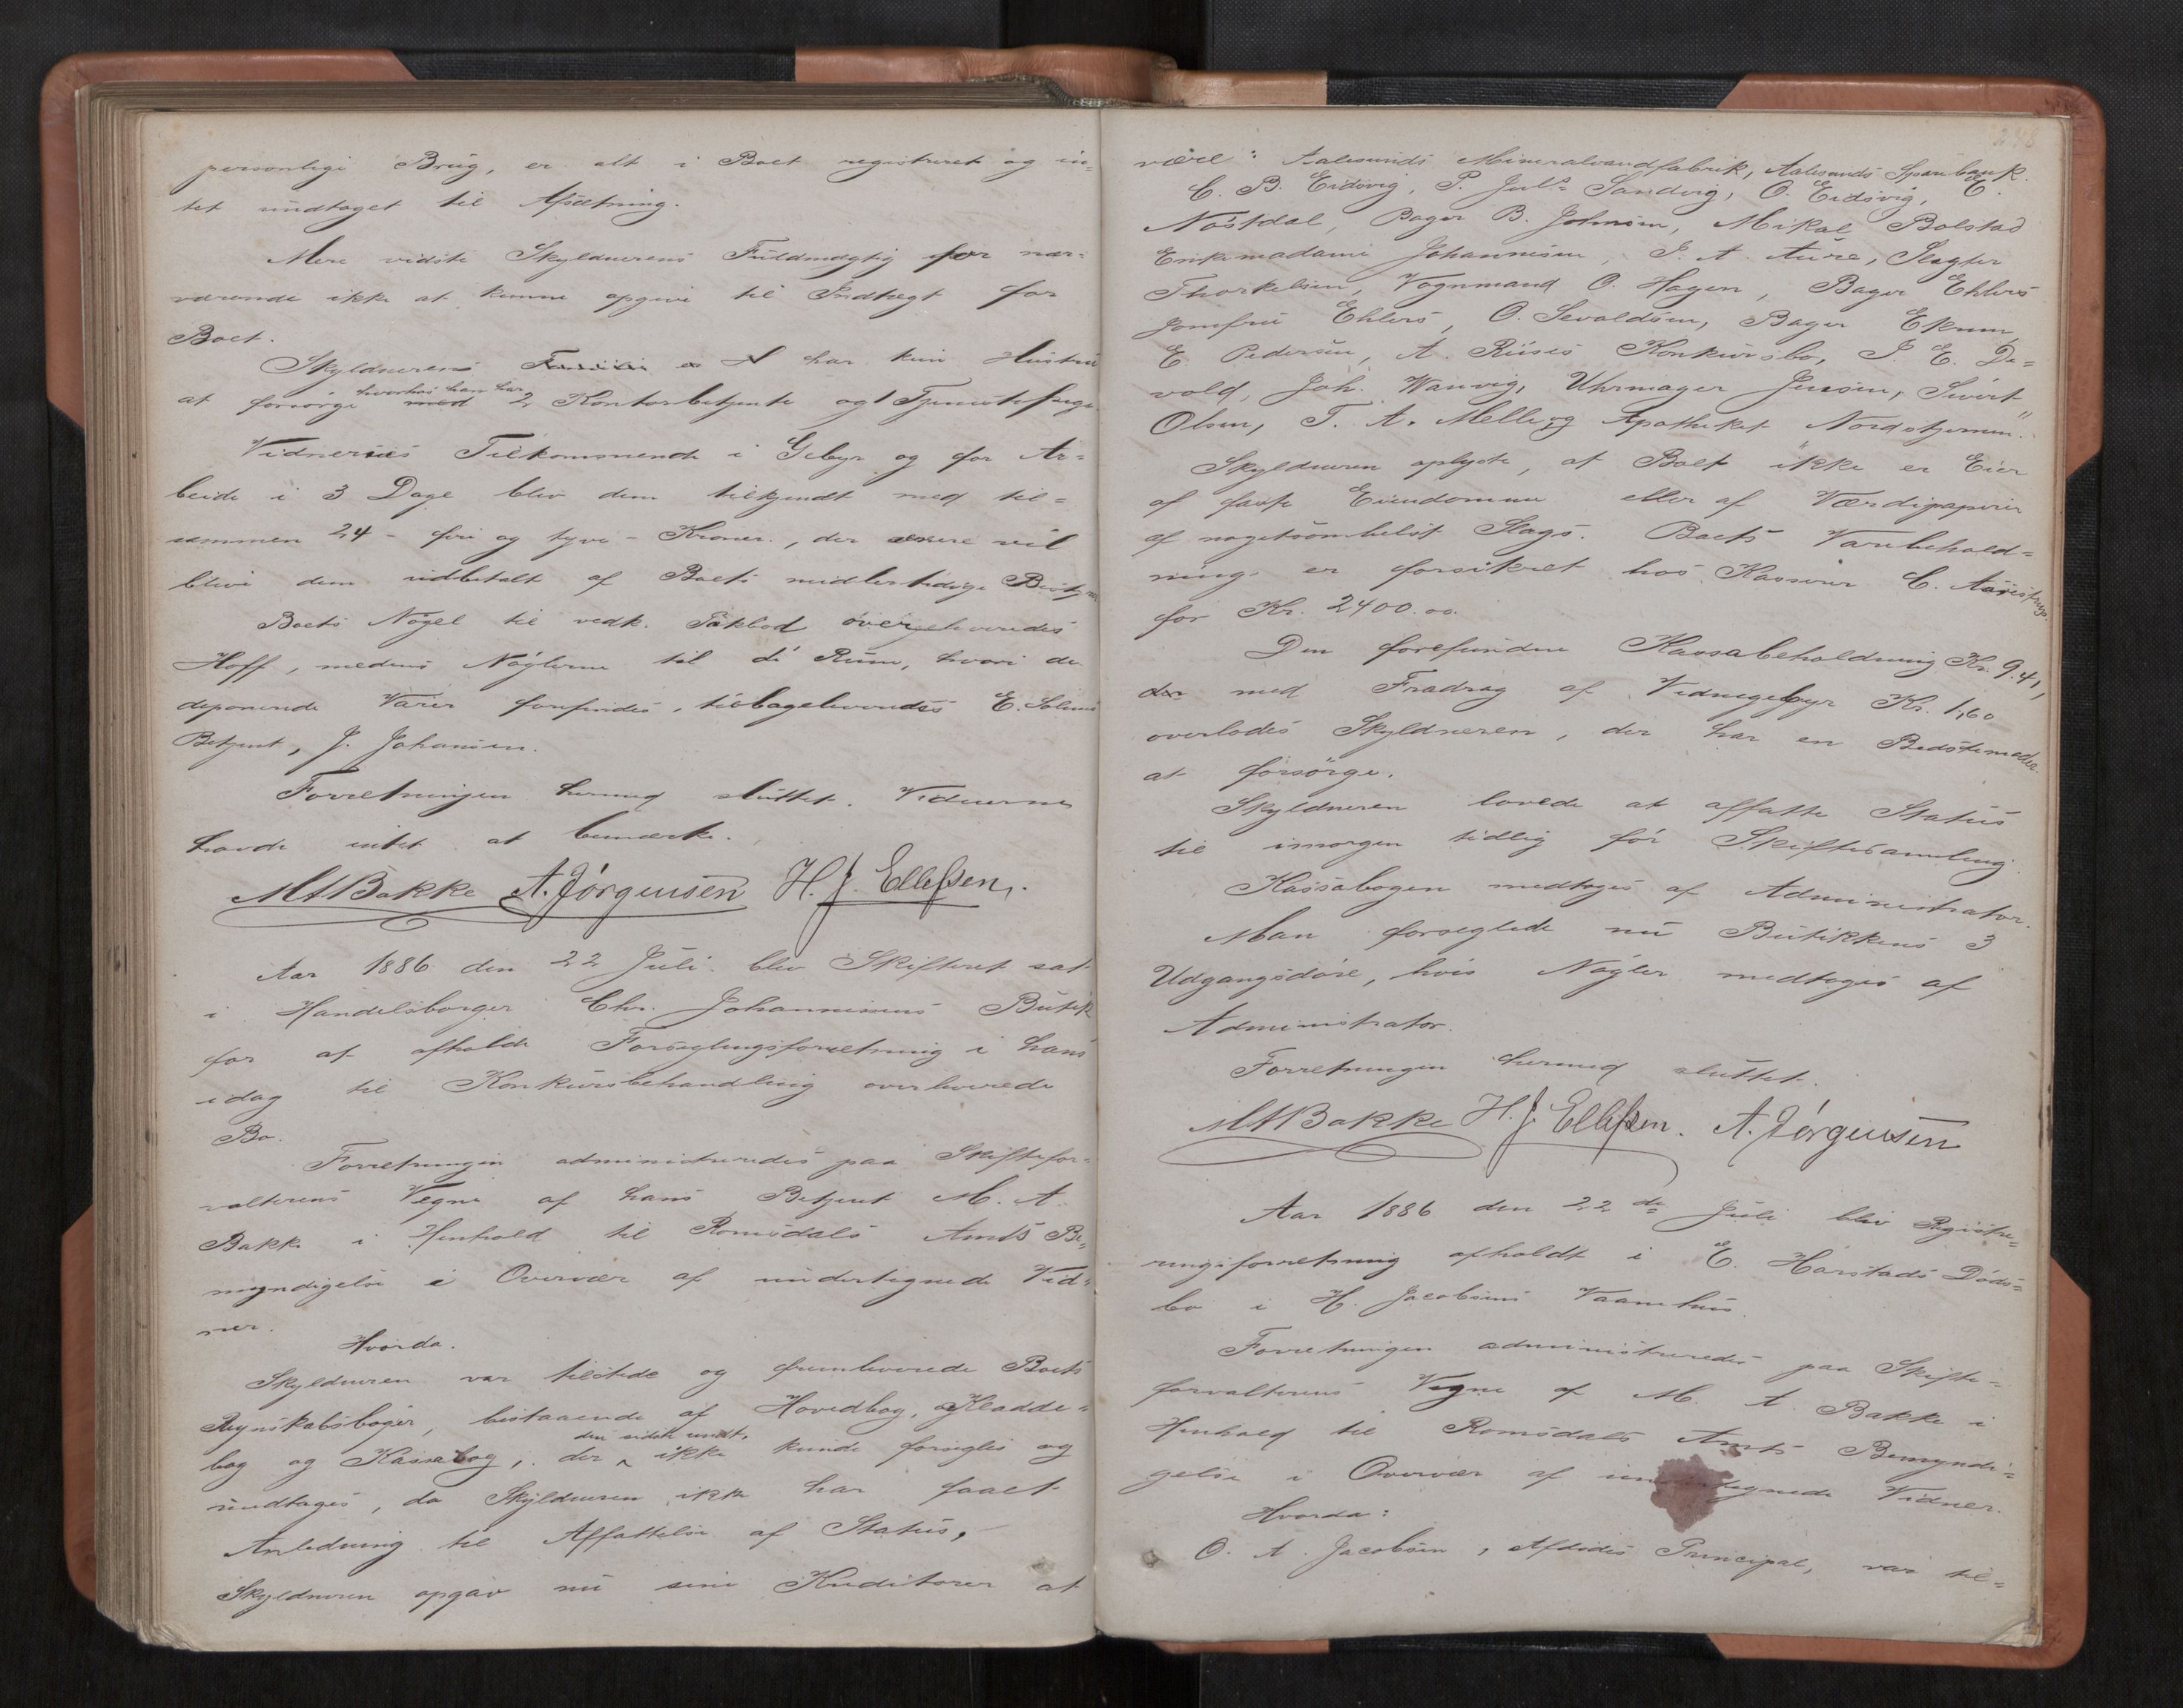 personlige Brug, er alt i Boet registreret og in-
tet undtaget til Afsætning.
Mere vidste Skyldnerens Fuldmægtig for nær-
værende ikke at kunne opgive til Indtægt for
Boet.
Skyldneren har kun Hustru
hvorhos han har
at forsørge med 2 Kontorbetjente og 1 Tjenestepige.
Vidnernes Tilkommende i Gebyr og for Ar-
beide i 3 Dage blev dem tilkjendt med til-
sammen 24 - fire og tyve - Kroner, der senere vil
blive dem udbetalt af Boets midlertidige Bestyrer
Boets Nøgel til vedk. Pakbod overleveredes
Hoff, medens Nøglerne til de Rum, hvori de
deponerede Varer forfindes, tilbageleveredes E. Solems
Betjent, J. Johansen.
Forretningen hermed sluttet. Vidnerne
havde intet at bemærke.
M A Bakke A. Jørgensen H. J. Ellefsen.
Aar 1886 den 22 Juli blev Skifteret sat
i Handelsborger Chr. Johannesens Butik
for at afholde Forseglingsforretning i hans
idag til Konkursbehandling overleverede
Bo.
Forretningen administreredes paa Skiftefor-
valterens Vegne af hans Betjent M. A.
Bakke i Henhold til Romsdals Amts Be-
myndigelse i Overvær af undertegnede Vid-
ner.
Hvorda.
Skyldneren var tilstede og fremleverede Boets
Regnskabsbøger, bestaaende af Hovedbog, Kladde-
den sidste undt.
bog og Kassabog, der ikke kunde forsegles og
medtages, da Skyldneren ikke har faaet
Anledning til Affattelse af Status.
Skyldneren opgav nu sine Kreditorer at
være: Aalesunds Mineralvandfabrik, Aalesunds Sparebank.
C. B. Eidsvig, P. Juls Sandvig, O. Eidsvig, E.
Nøstdal, Bager B. Johnsen, Mikal Bolstad
Enkemadame Johannesen, J. A Aure, Slagter
Thorkelsen, Vognmand O. Hagen, Bager Ehlers
Jomfru Ehlers, O. Sevaldsen, Bager Ekrem,
E. Pedersen, A. Riises Konkursbo, J. E. De-
vold, Joh. Wanvig, Uhrmager Jensen, Sivert
Olsen, T. A. Melle, og Apotheket "Nordstjernen".
Skyldneren oplyste, at Boet ikke er Eier
af faste Eiendomme eller af Værdipapirer
af nogetsomhelst Slags. Boets Varebehold-
ning er forsikret hos Kasserer C. Aarestrup
for Kr. 2400.00.
Den forefundne Kassabeholdning Kr. 9.41,
der med Fradrag af Vidnegebyr Kr. 1,60
overlodes Skyldneren, der har en Bedstemoder
at forsørge.
Skyldneren lovede at affatte Status
til imorgen tidlig før Skiftesamling.
Kassabogen medtoges af Administrator.
Man forseglede nu Butikkens 3
Udgangsdøre, hvis Nøgler medtoges af
Administrator.
Forretningen hermed sluttet.
M A Bakke H. J. Ellefsen. A. Jørgensen
Aar 1886 den 22de Juli blev Registre-
ringsforretning afholdt i E. Harstads Døds-
bo i H. Jacobsens Vaanehus.
Forretningen administreredes paa Skifte-
forvalterens Vegne af M. A. Bakke i
Henhold til Romsdals Amts Bemyndi-
gelse i Overvær af undertegnede Vidner.
Hvorda:
O. A. Jacobsen, Afdødes Principal, var til-